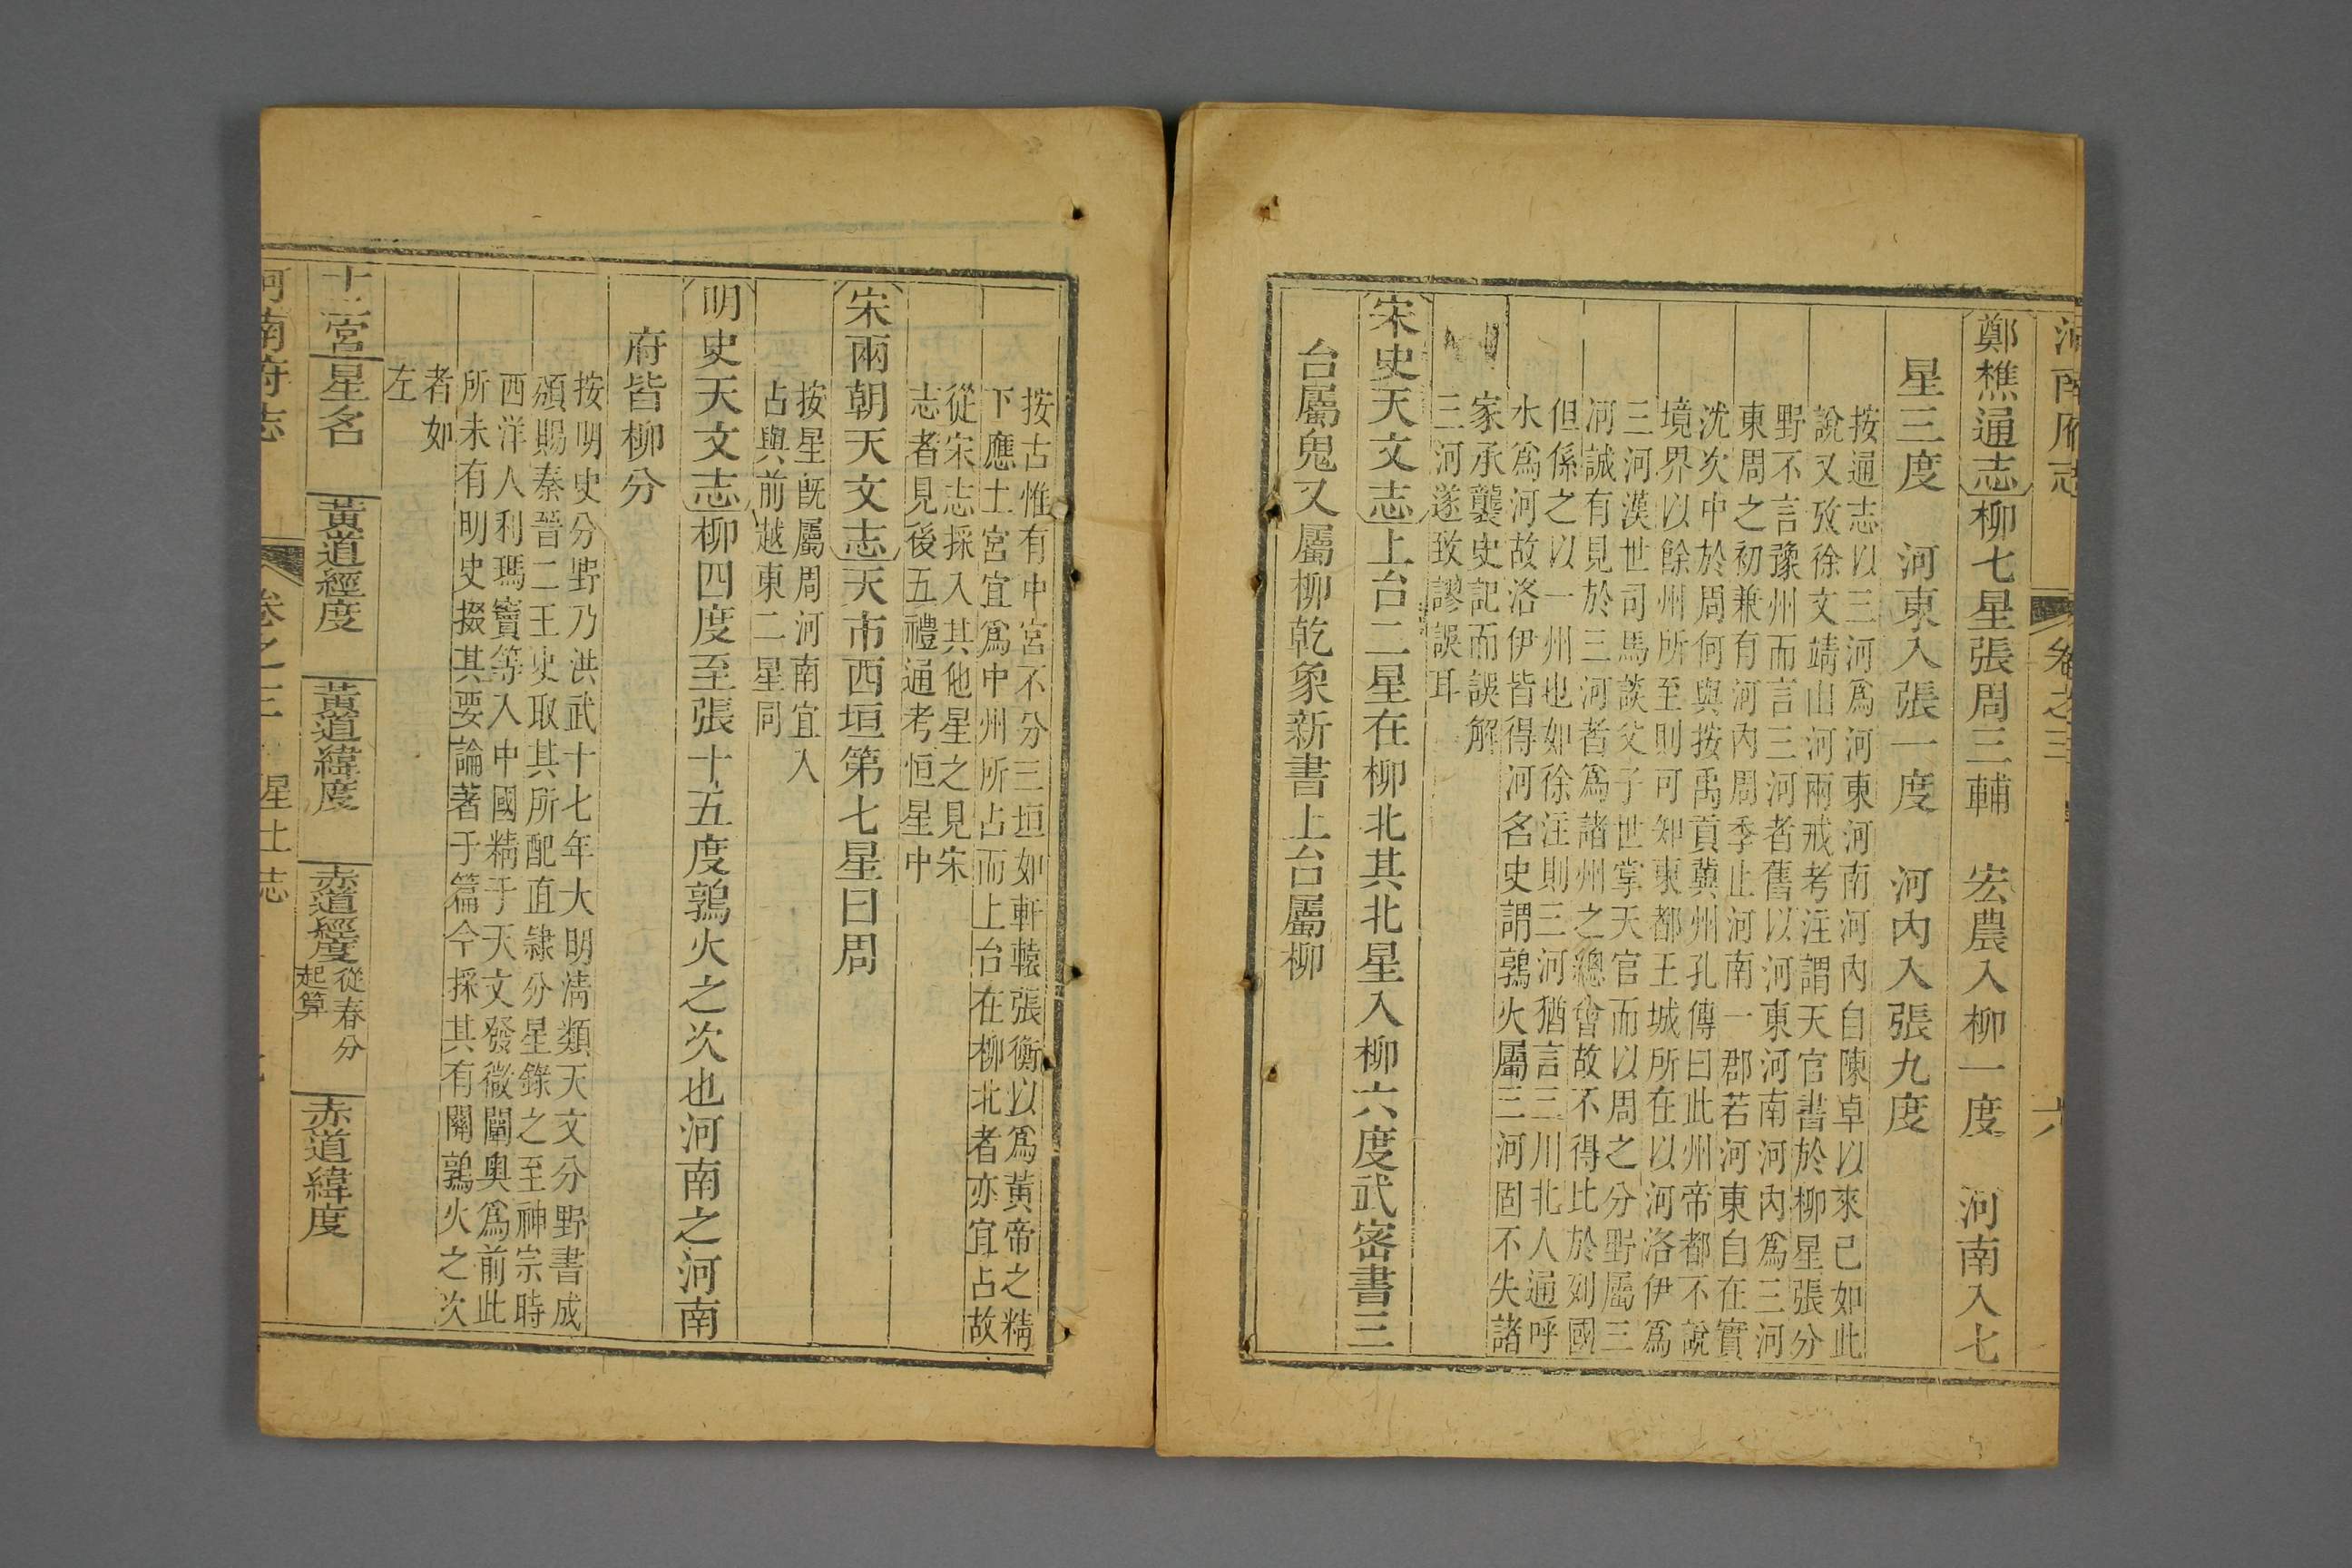 河南府志 卷之三 六
鄭樵通志柳七星張周三輔 宏農入柳一度 河南入七
星三度 河東入張一度 河內入張九度
按通志以三河爲河東河南河內自陳卓以來已如此
說又攷徐文靖山河兩戒考注謂天官書於柳星張分
野不言豫州而言三河者舊以河東河南河內爲三河
東周之初兼有河內周季止河南一郡若河東自在實
沈次中於周何與按禹貢冀州孔傳曰此州帝都不說
境界以餘州所至則可知東都王城所在以河洛伊爲
三河漢世司馬談父子世掌天官而以周之分野屬三
河誠有見於三河者爲諸州之總會故不得比於列國
但係之以一州也如徐注則三河猶言三川北人通呼
水爲河故洛伊皆得河名史謂鶉火屬三河固不失諸
家承襲史記而誤解
三河遂致謬誤耳
宋史天文志上台二星在柳北其北星入柳六度武密書三
台屬鬼又屬柳乾象新書上台屬柳
按古惟有中宮不分三垣如軒轅張衡以爲黃帝之精
下應土宮宜爲中州所占而上台在柳北者亦宜占故
從宋志採入其他星之見宋
志者見後五禮通考恒星中
宋兩朝天文志天市西垣第七星曰周
按星旣屬周河南宜入
占與前越東二星同
明史天文志柳四度至張十五度鶉火之次也河南之河南
府皆柳分
按明史分野乃洪武十七年大明淸類天文分野書成
頒賜秦晉二王史取其所配直隸分星錄之至神宗時
西洋人利瑪竇等入中國精于天文發微闡奧爲前此
所未有明史掇其要論著于篇今採其有關鶉火之次
者如
左
十二宮 星名 黃道經度 黃道緯度 赤道經度 從春分起算 赤道緯度
河南府志 卷之三 星土志